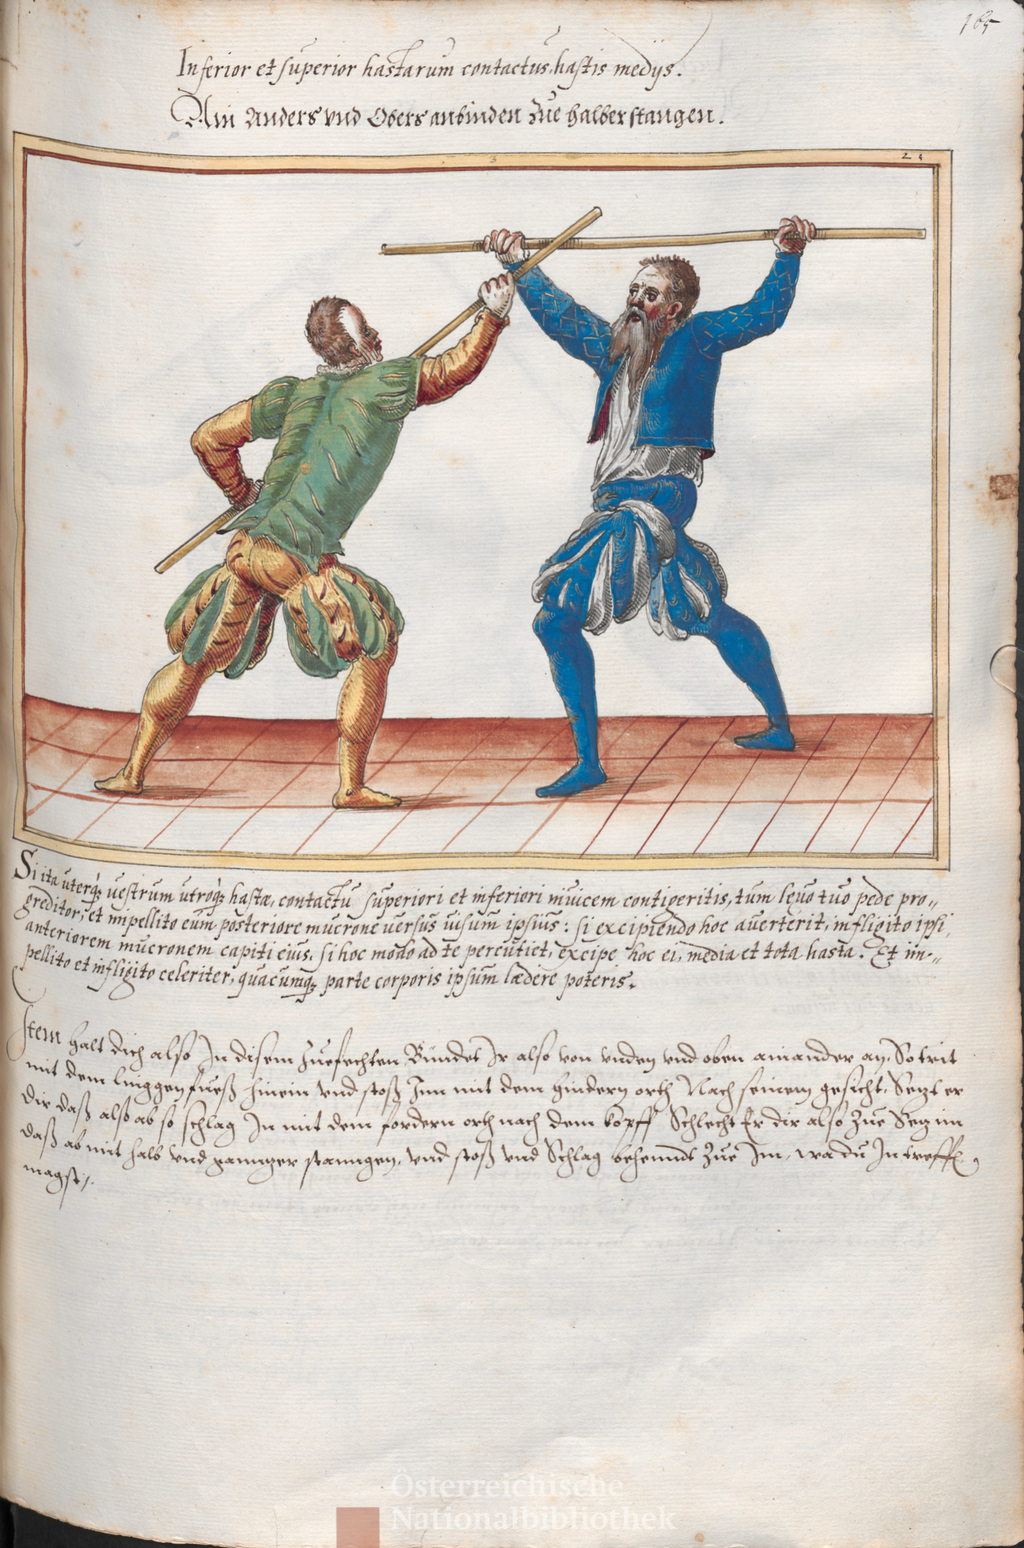 165
Inferior et superior hastarum contactus, hastis medijs.
Ain Anders vnd Obers anbinden zue halber stangen.
Si ita uterq; uestrum utroq; hastæ, contactu superiori et inferiori inuicem contigeritis, tum leuo tuo pede pro„
greditor, et impellito eum posteriore mucrone uersus uisum ipsius: si excipiendo hoc auerterit, infligito ipsi
anteriorem mucronem capiti eius, si hoc modo ad te percutiet, excipe hoc ei, media et tota hasta. Et im-„
pellito et infligito celeriter, quacumq; parte corporis ipsum lædere poteris.
Item halt dich also In disem zuefechten Bundet Ir also von vnden vnd oben ainander an, So trit
mit dem linggen fueß hinein vnd stoß Inn mit dem hindern orth Nach seinem gesicht, Sezt er
dir daß alß ab so schlag In mit dem fordern orth nach dem kopff Schlecht Er dir also zue Sez im
daß ab mit halb vnd gannzer stanngen, vnd stoß vnd Schlag behenndt zue Im, wa du In treffen
magst,.
Österreichische
Nationalbibliothek